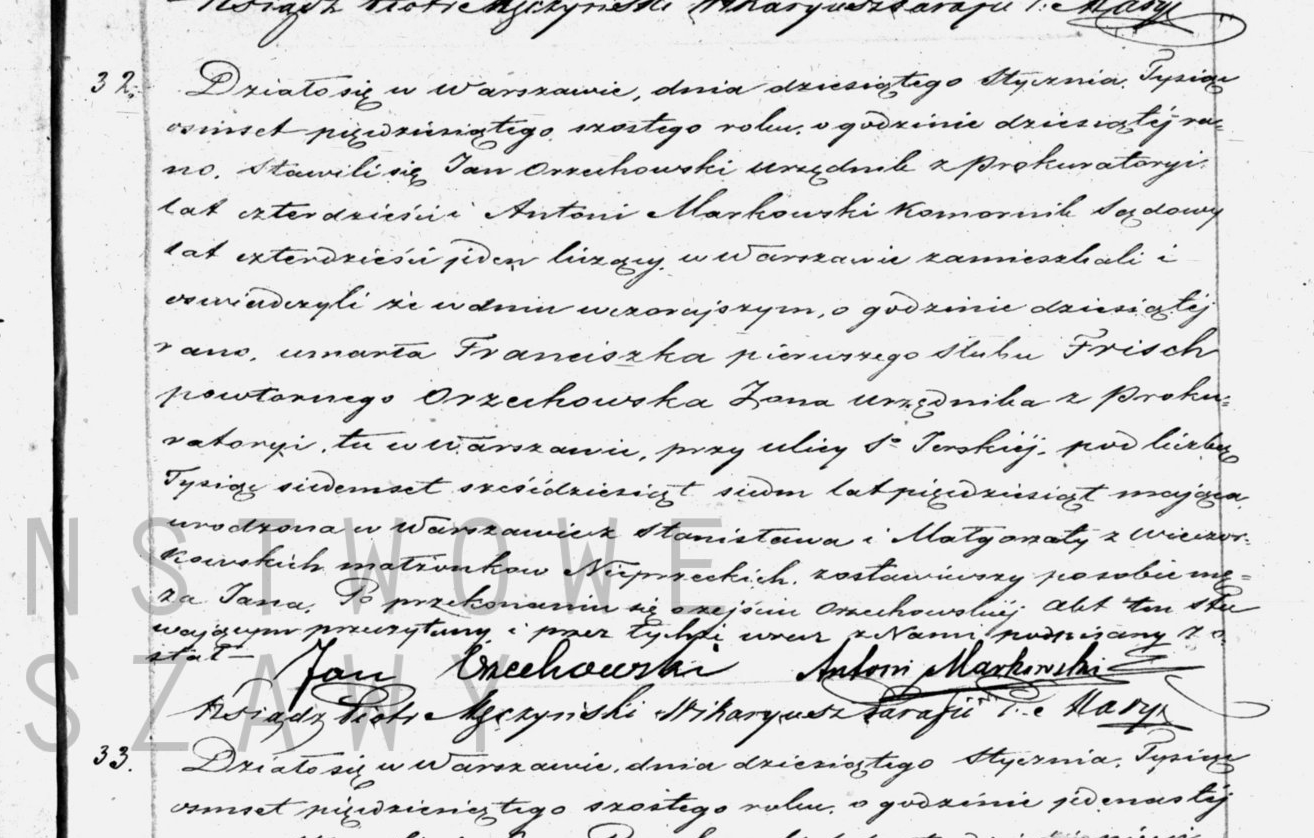 Ksiądz Piotr Mężczyński Wikaryusz Parafii P. Maryi
32. Działo się w Warszawie, dnia dziesiątego Stycznia, Tysiąc
osmset pięćdziesiątego szostego roku, o godzinie dziesiątej ra=
no. Stawili się Jan Orzechowski urzędnik z Prokuratoryi
lat czterdzieści i Antoni Markowski Komornik Sądowy
lat czterdzieści jeden liczący, w Warszawie zamieszkali i
oswiadczyli że w dniu wczorajszym, o godzinie dziesiątéj
rano, umarła Franciszka pierwszego slubu Frisch
powtornego Orzechowska Żona urzędnika z Proku=
ratoryi, tu w Warszawie, przy ulicy Sto Jerskiéj, pod liczbą
Tysiąc siedemset sześćdziesiąt siedm lat pięćdziesiąt mająca,
urodzona w Warszawie z Stanisława i Małgorzaty z Wieczor=
kowskich małżonkow Nieprzeckich, zostawiwszy po sobie mę=
ża Jana. Po przekonaniu się o zejściu Orzechowskiéj, Akt ten Sta
wającym przeczytany, i przez tychże wraz z Nami podpisany zo=
stał
Jan Orzechowski Antoni Markowski
Ksiądz Piotr Mężczyński Wikaryusz Parafii P. Maryi
33. Działo się w Warszawie, dnia dziesiątego Stycznia, Tysiąc
osmset pięćdziesiątego szostego roku, o godzinie jedenastéj
NSTWOWE
SZAWY